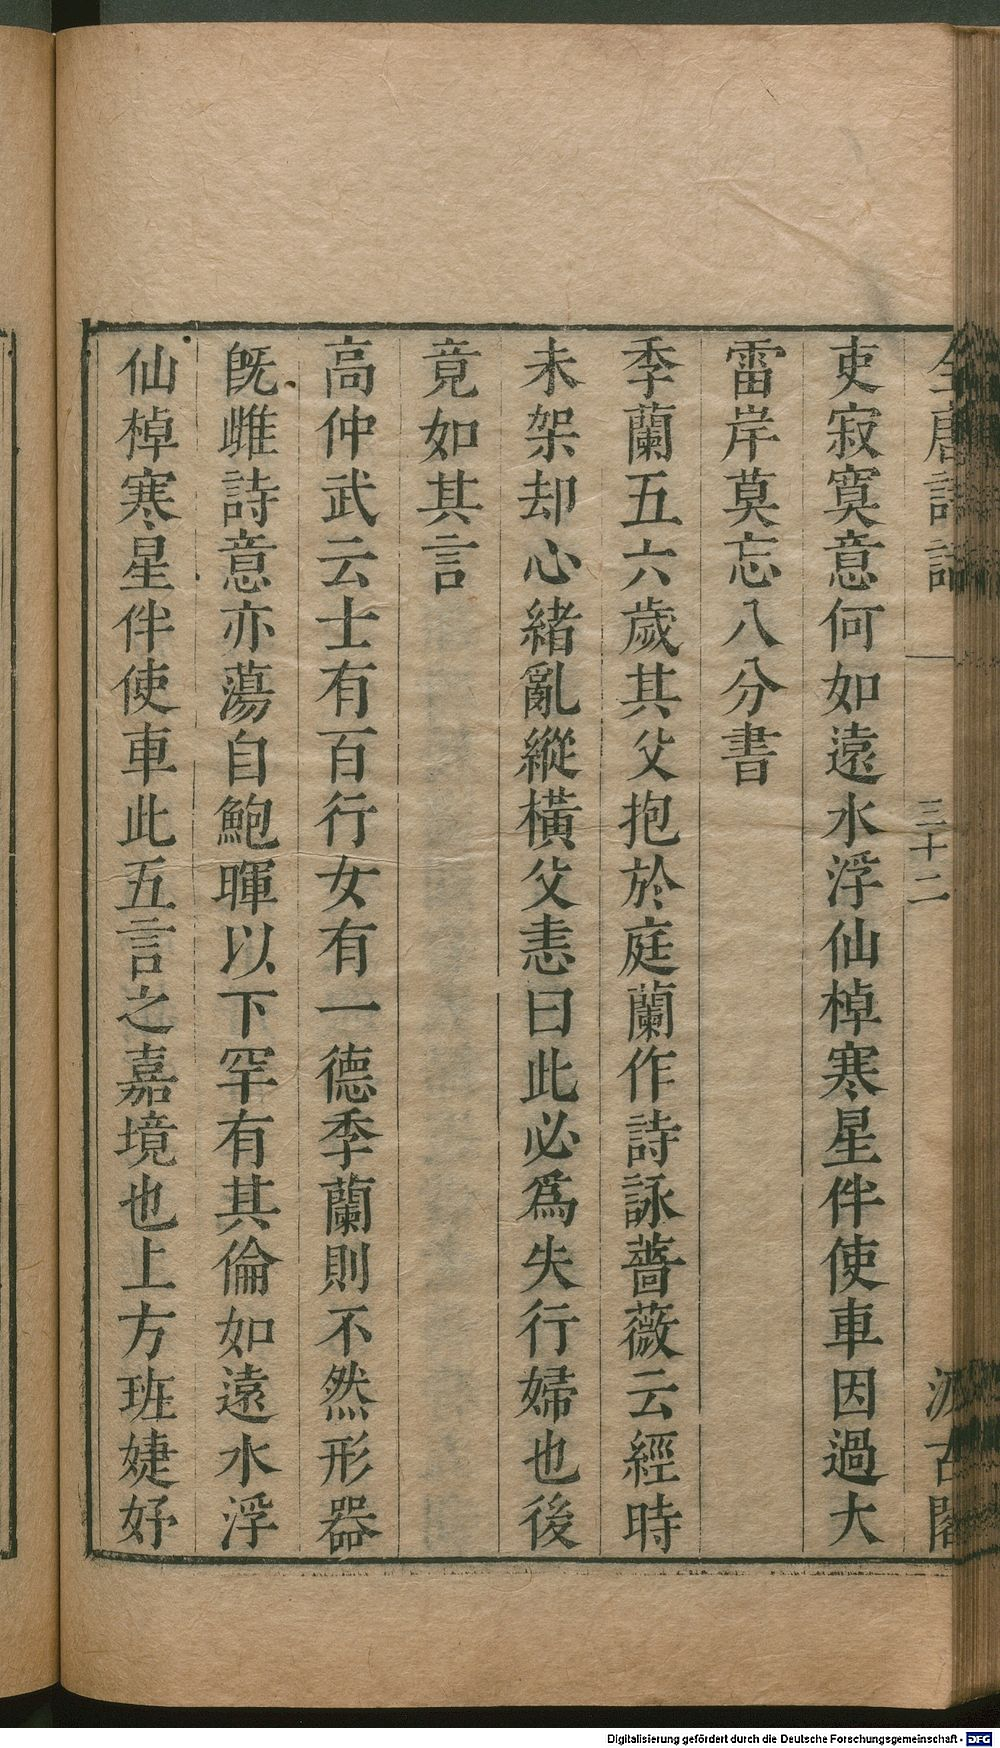 全唐詩話
三十二
汲古閣
吏寂寞意何如遠水浮仙棹寒星伴使車因過大
雷岸莫忘八分書
季蘭五六歲其父抱於庭蘭作詩詠薔薇云經時
未架却心緒亂縱橫父恚曰此必爲失行婦也後
竟如其言
高仲武云士有百行女有一德季蘭則不然形器
旣雌詩意亦蕩自鮑暉以下罕有其倫如遠水浮
仙棹寒星伴使車此五言之嘉境也上方班婕妤
Digitalisierung gefördert durch die Deutsche Forschungsgemeinschaft - DFG